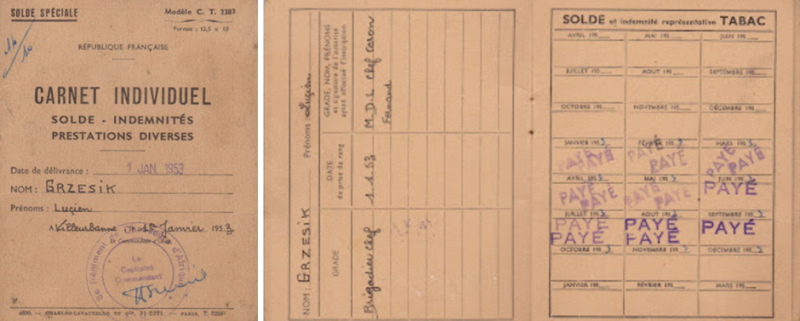 SOLDE SPÉCIALE
Modèle C. T. 2382
Format : 13,5 x 12
RÉPUBLIQUE FRANÇAISE
CARNET INDIVIDUEL
SOLDE - INDEMNITÉS
PRESTATIONS DIVERSES
Date de délivrance : 1 JAN. 1953
NOM : GRZESIK
Prénoms : Lucien
A Villeurbanne le 1er Janvier 1953
Régiment d'Afrique
Le
Capitaine
Commandant
NOM : GRZESIK Prénoms : Lucien
GRADE
DATE
de prise de rang
GRADE, NOM, PRÉNOMS
et signature de l'autorité
ayant effectué l'inscription
Brigadier Chef
1.1.53
M.D.L Chef Caron
Fernand
SOLDE et indemnité représentative TABAC
AVRIL 195 MAI 195 JUIN 195
JUILLET 195 AOUT 195 SEPTEMBRE 195
OCTOBRE 195 NOVEMBRE 195 DÉCEMBRE 195
JANVIER 1953 FÉVRIER 1953 MARS 1953
PAYÉ PAYÉ PAYÉ PAYÉ PAYÉ PAYÉ
AVRIL 1953 MAI 1953 JUIN 1953
PAYÉ PAYÉ PAYÉ PAYÉ PAYÉ
JUILLET 1953 AOUT 1953 SEPTEMBRE 1953
PAYÉ PAYÉ PAYÉ
PAYÉ PAYÉ
OCTOBRE 1953 NOVEMBRE 1953 DÉCEMBRE 1953
JANVIER 195 FÉVRIER 195 MARS 195